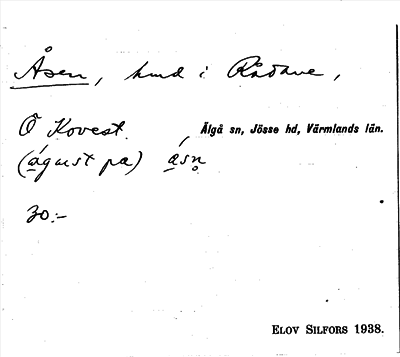 Åsen, hmd i Rådane,
Ö Kovest. Älgå sn, Jösse hd, Värmlands län.
(águst pa) ásn̥
30:-
ELOV SILFORS 1938.